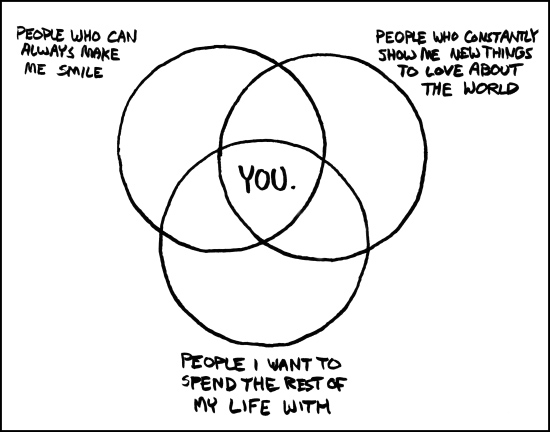 PEOPLE WHO CAN
ALWAYS MAKE
ME SMILE
PEOPLE WHO CONSTANTLY
SHOW ME NEW THINGS
TO LOVE ABOUT
THE WORLD
YOU.
PEOPLE I WANT TO
SPEND THE REST OF
MY LIFE WITH